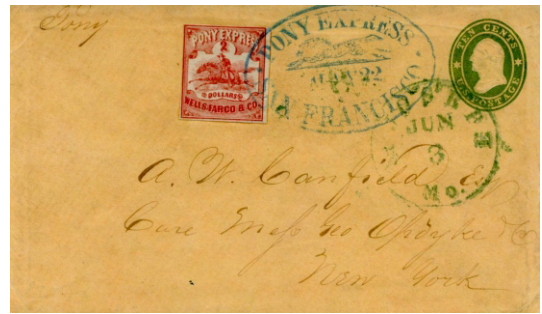 Pony
PONY EXPRESS
2
DOLLARS
WELLS FARGO & CO.
PONY EXPRESS
22
SAN FRANCISCO
TEN CENTS
U.S. POSTAGE
JUN
3
Mo.
A. W. Canfield Esq
Care Mess Geo Opdyke & Co
New York